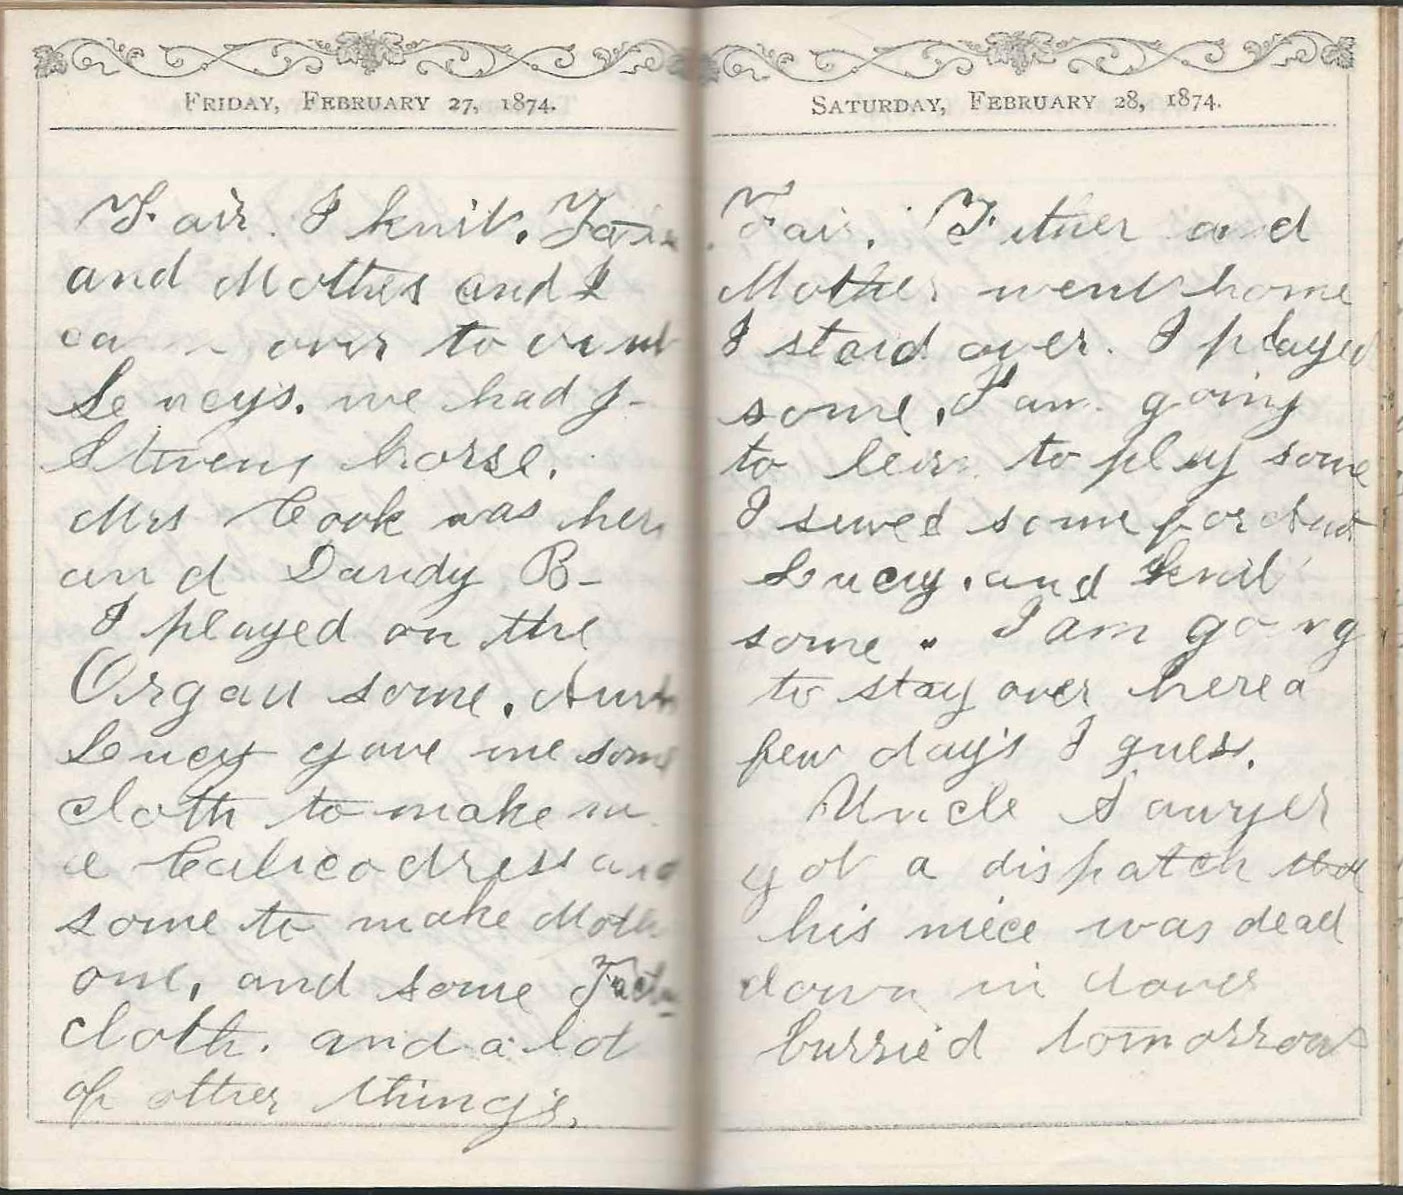 FRIDAY, FEBRUARY 27, 1874.
Fair. I knit.
and Mother and I
over to
Lucys. we had J-
Stevens horse.
Mrs Cook was here
and Dandy B-
I played on the
Organ some. Aunt
Lucy gave me some
cloth to make
a Calico dress and
some to make Moth
one, and some
cloth. and a lot
of other things.
SATURDAY, FEBRUARY 28, 1874.
Fair. Father and
Mother went home
I staid over. I played
some. I am going
to lern to play some
I sewed some for Aunt
Lucy. and knit
some. I am going
to stay over here a
few day's I guess.
Uncle Sawyer
got a dispatch that
his niece was dead
down in dover
burried tomorrow